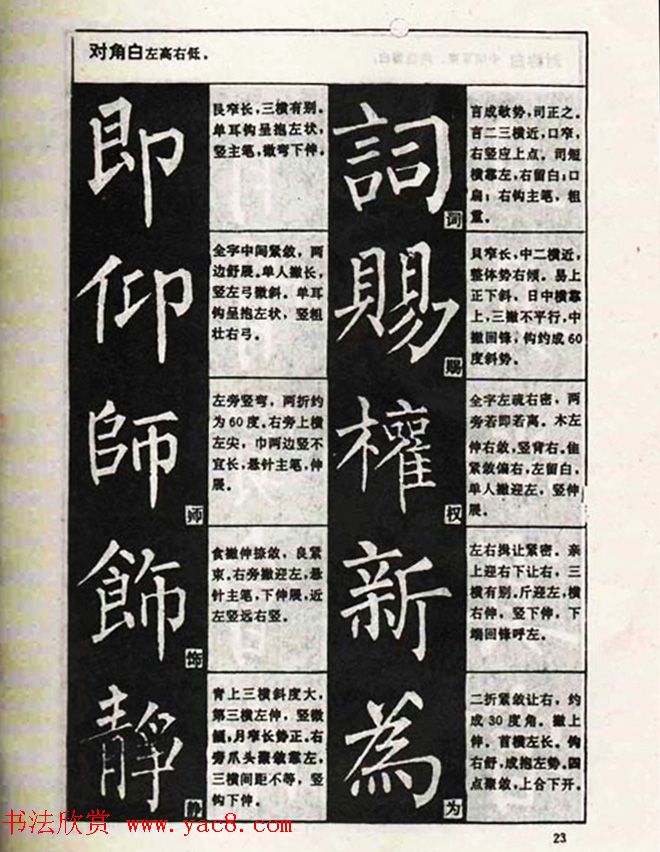 对角白左高右低。
即
艮窄长，三横有别。
单耳钩呈抱左状，
竖主笔，微弯下伸。
仰
全字中间紧敛，两
边舒展。单人撇长，
竖左弓微斜。单耳
钩呈抱左状，竖粗
壮右弓。
師
师
左旁竖弯，两折约
为60度。右旁上横
左尖，巾两边竖不
宜长，悬针主笔，伸
展。
飾
饰
食撇伸捺敛，良紧
束。右旁撇迎左，悬
针主笔，下伸展，近
左竖远右竖。
靜
静
青上三横斜度大，
第三横左伸，竖微
倾，月窄长势正。右
旁爪头聚敛靠左，
三横间距不等，竖
钩下伸。
詞
词
言成欹势，司正之。
言二三横近，口窄，
右竖应上点。司短
横靠左，右留白；口
扁；右钩主笔，粗
重。
賜
赐
貝窄长，中二横近，
整体势右倾。易上
正下斜，日中横靠
上，三撇不平行，中
撇回锋，钩约成60
度斜势。
權
权
全字左疏右密，两
旁若即若离。木左
伸右敛，竖背右。隹
紧敛偏右，左留白，
单人撇迎左，竖伸
展。
新
左右揖让紧密。亲
上迎右下让右，三
横有别。斤迎左，横
右伸，竖下伸，下
端回锋呼左。
為
为
二折紧敛让右，约
成30度角。撇上
伸。首横左长。钩
右舒，成抱左势。四
点聚敛，上合下开。
书法欣赏 www.yac8.com
23